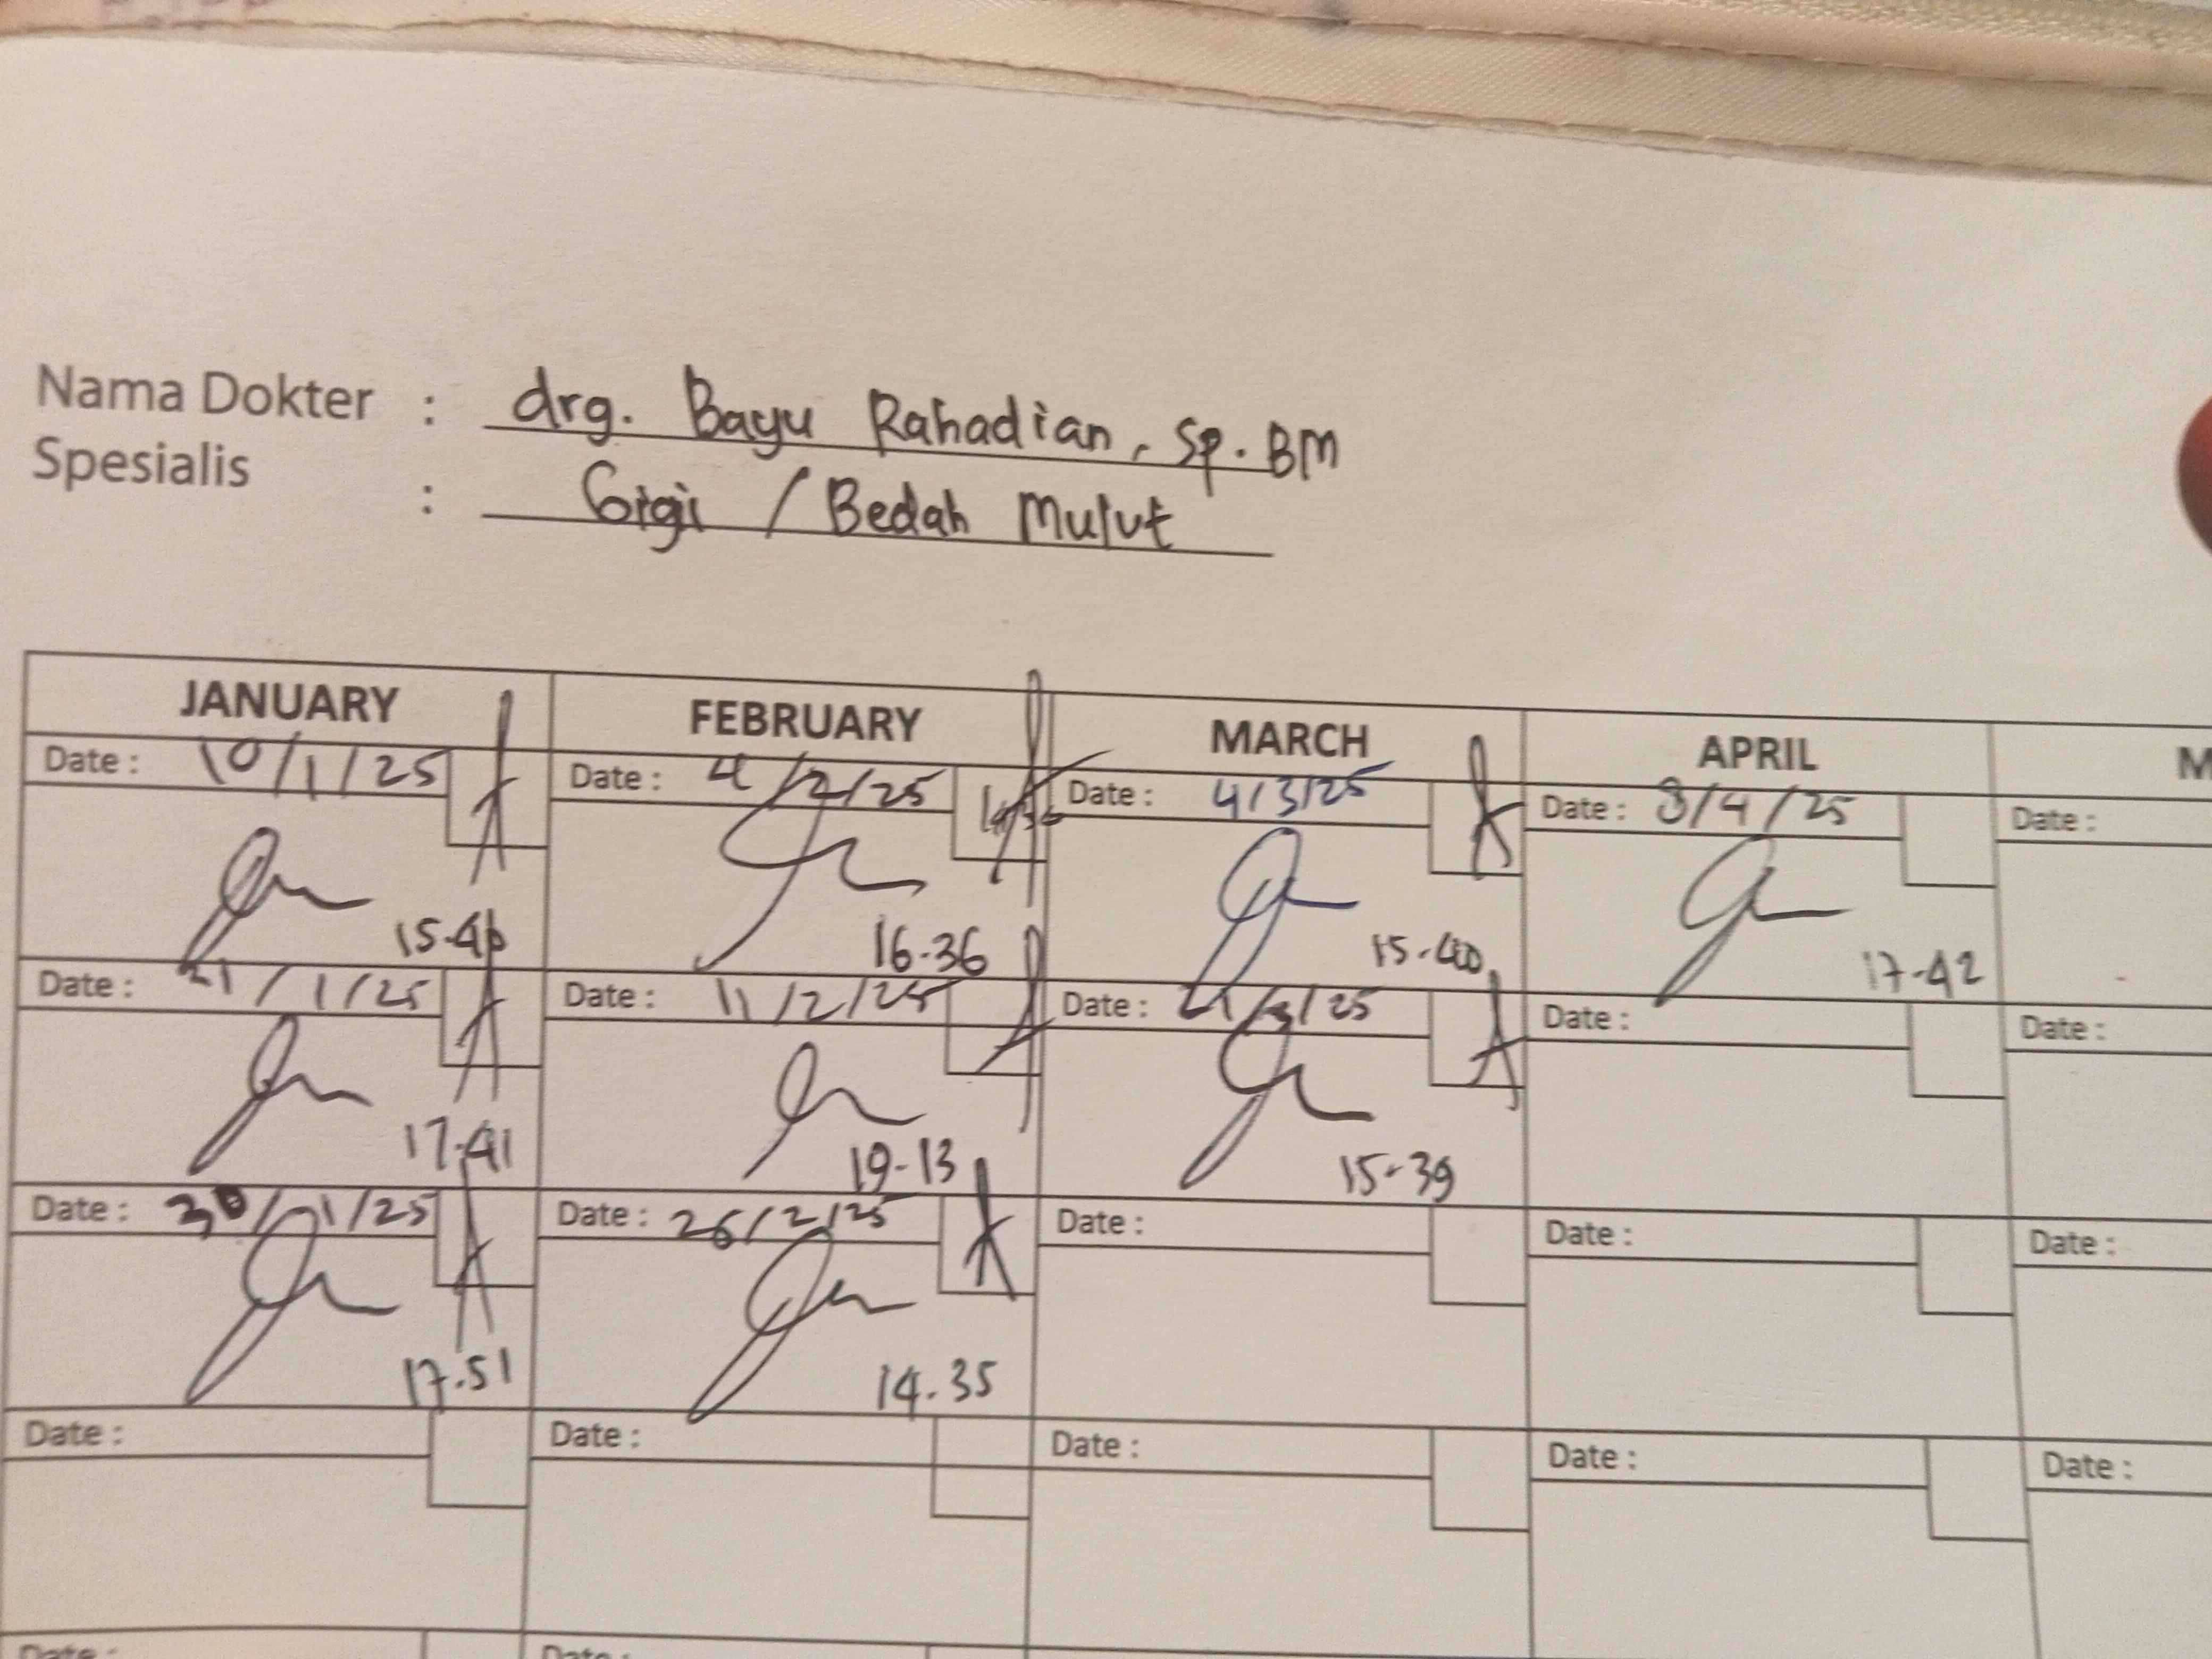 Nama Dokter : drg. Bayu Rahadian, Sp. BM
Spesialis : Gigi / Bedah Mulut
JANUARY FEBRUARY MARCH APRIL
Date : 10/1/25 Date : 4/2/25 Date : 4/3/25 Date : 8/4/25 Date :
16.36 15.40 17-42
Date : 21/1/25 Date : 11/2/25 Date : 21/3/25 Date : Date :
17.41 19-13 15-39
Date : 30/1/25 Date : 26/2/25 Date : Date : Date :
17.51 14.35
Date : Date : Date : Date : Date :